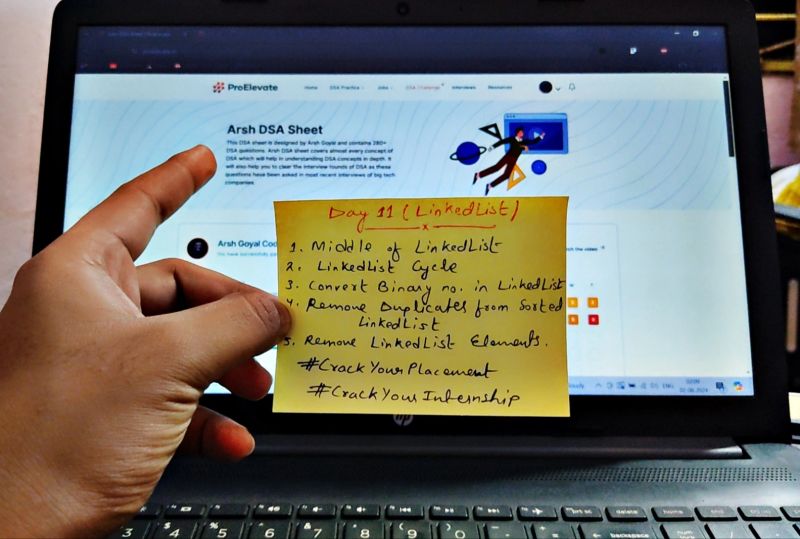 ProElevate
Home DSA Practice Jobs DSA Challenge Interviews Resources
Arsh DSA Sheet
This DSA sheet is designed by Arsh Goyal and contains 280+
DSA questions. Arsh DSA sheet covers almost every concept of
DSA which will help in understanding DSA concepts in depth. It
will also help you to clear the interview rounds of DSA as these
questions have been asked in most recent interviews of big tech
companies.
Arsh Goyal
the video
Day 11 (LinkedList)
1. Middle of LinkedList
2. LinkedList Cycle
3. Convert Binary no. in LinkedList
4. Remove Duplicates from Sorted
LinkedList
5. Remove LinkedList Elements.
#CrackYourPlacement
#CrackYourInternship
ENG
02-08-2024
hp
delete
home
backspace
3 4 5 6 7 8 9 0
$ % ^ & * ( )